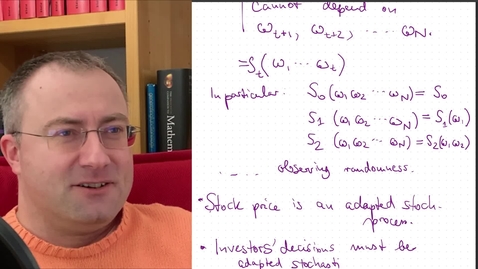 Mathem
Cannot depend on
ω_{t+1}, ω_{t+2}, ..... ω_N.
=S_t(ω_1 ... ω_t)
In particular: S_0 (ω_1 ω_2 ... ω_N) = S_0
S_1 (ω_1 ω_2 ... ω_N) = S_1(ω_1)
S_2 (ω_1 ω_2 ... ω_N) = S_2(ω_1 ω_2)
..... observing randomness.
• Stock price is an adapted stoch.
process.
• Investors' decisions must be
adapted stochasti